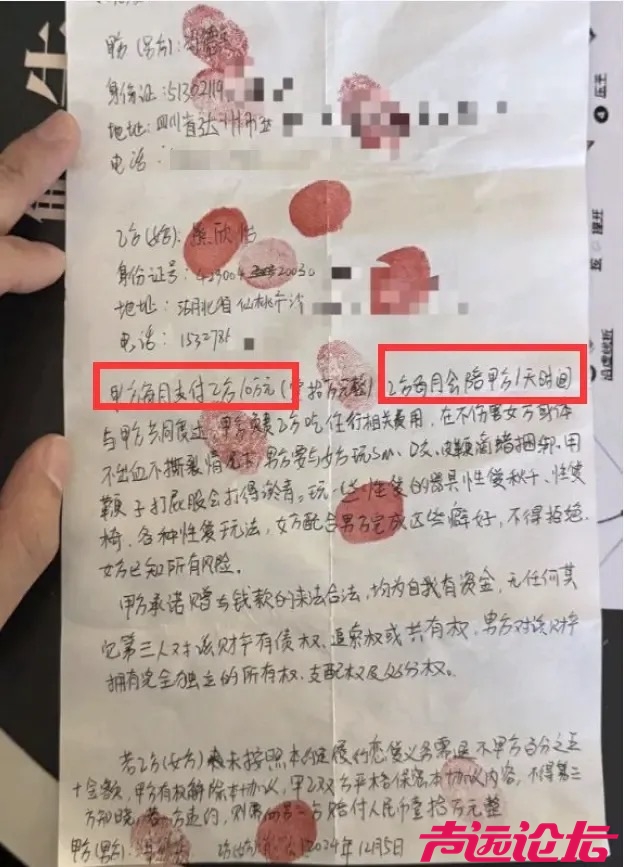 甲方(男方):
身份证:51302119
地址:四川省达州市
电话:
乙方(女方):
身份证号:
地址:湖北省仙桃市
电话:
甲方每月支付乙方10万元(壹拾万元整)乙方每月会陪甲方1天时间
与甲方共同度过,甲方负责乙方吃住行相关费用,在不伤害女方身体
不出血不撕裂情况下男方要与女方玩Sm、皮鞭滴蜡捆绑、用
鞭子打屁股会打得淤青。玩一些性爱的器具性爱秋千、性爱
椅、各种性爱玩法,女方配合男方完成这些癖好,不得拒绝.
女方已知所有风险。
甲方承诺赠与钱款的来法合法,均为自我有资金,无任何其
它第三人对该财产有债权、追索权或共有权,男方对该财产
拥有完全独立的所有权、支配权及处分权。
若乙方(女方)未按照本协议履行恋爱义务需退还甲方百分之五
十金额,甲方有权解除本协议,甲乙双方严格保密本协议内容,不得第三
方知晓,若一方违约,则需向另一方赔付人民币壹拾万元整
甲方(男方): 乙方(女方): 2024年12月5日
声远论坛